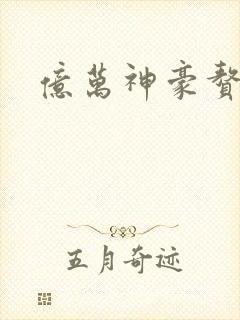 億萬神豪贅
五月奇迹